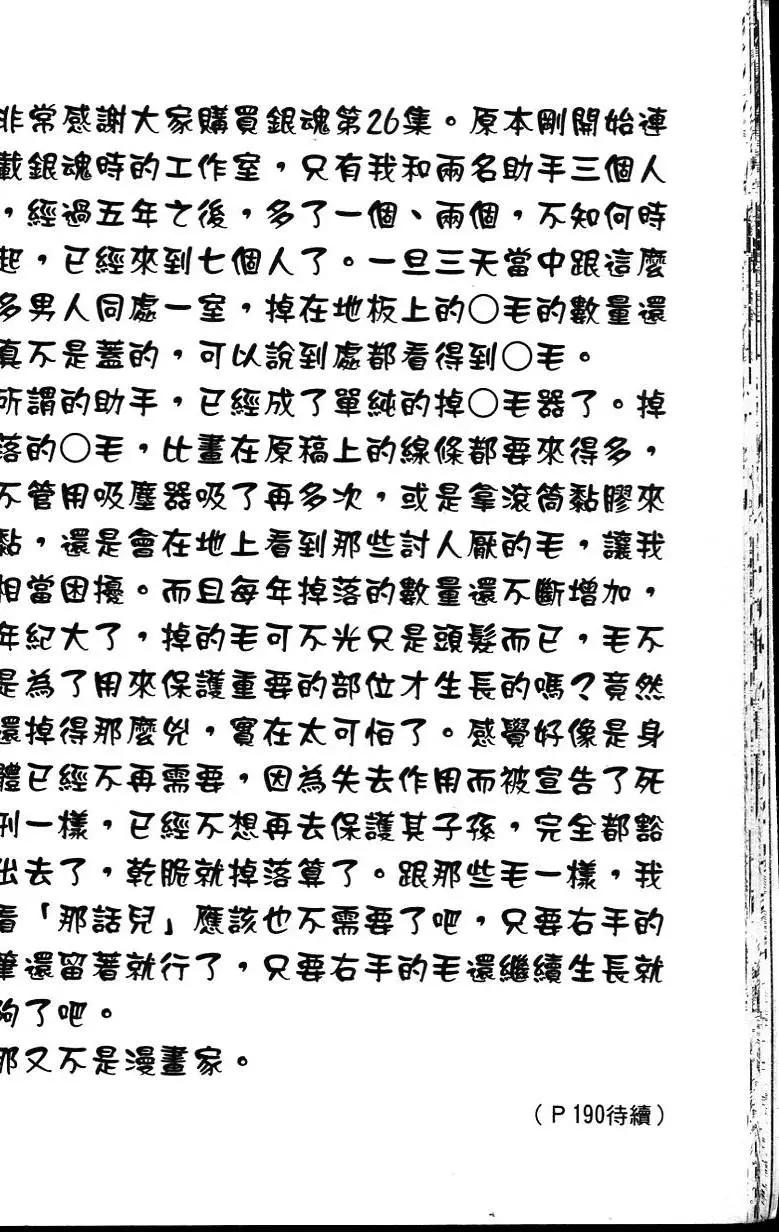 非常感謝大家購買銀魂第26集。原本剛開始連
載銀魂時的工作室，只有我和兩名助手三個人
，經過五年之後，多了一個、兩個，不知何時
起，已經來到七個人了。一旦三天當中跟這麼
多男人同處一室，掉在地板上的〇毛的數量還
真不是蓋的，可以說到處都看得到〇毛。
所謂的助手，已經成了單純的掉〇毛器了。掉
落的〇毛，比畫在原稿上的線條都要來得多，
不管用吸塵器吸了再多次，或是拿滾筒黏膠來
黏，還是會在地上看到那些討人厭的毛，讓我
相當困擾。而且每年掉落的數量還不斷增加，
年紀大了，掉的毛可不光只是頭髮而已，毛不
是為了用來保護重要的部位才生長的嗎？竟然
還掉得那麼兇，實在太可恒了。感覺好像是身
體已經不再需要，因為失去作用而被宣告了死
刑一樣，已經不想再去保護其子孫，完全都豁
出去了，乾脆就掉落算了。跟那些毛一樣，我
看「那話兒」應該也不需要了吧，只要右手的
筆還留著就行了，只要右手的毛還繼續生長就
夠了吧。
那又不是漫畫家。
（P190待續）